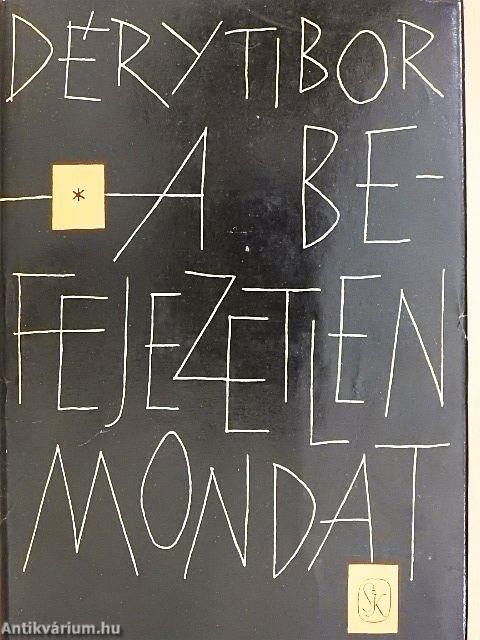 DÉRY TIBOR
*
A BE-
FEJEZETLEN
MONDAT
SzK
Antikvárium.hu